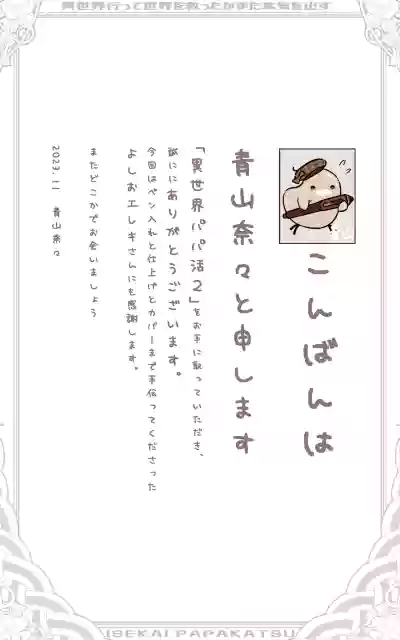 こんばんは
青山奈々と申します
「異世界パパ活2」をお手に取っていただき、
誠ににありがとうございます。
今回はペン入れと仕上げとカバーまで手伝ってくださった
よしおエレキさんにも感謝します。
またどこかでお会いましょう
2023.11 青山奈々
ISEKAI PAPAKATSU